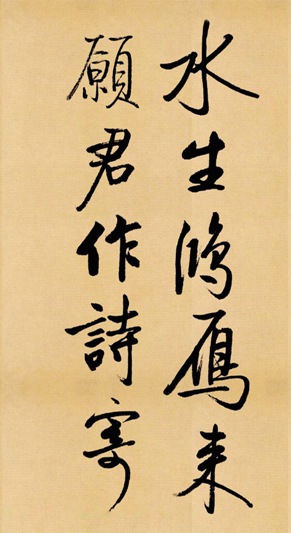 水生鴻雁来
願君作詩寄